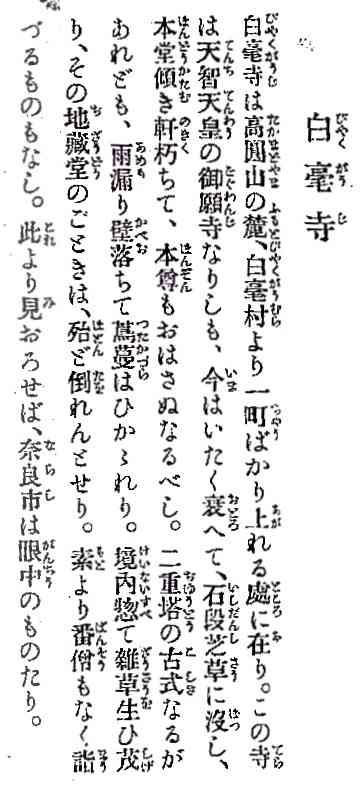 白毫寺
白毫寺は高圓山の麓、白毫村より一町ばかり上れる處に在り。この寺
は天智天皇の御願寺なりしも、今はいたく衰へて、石段芝草に沒し、
本堂傾き軒朽ちて、本尊もおはさぬなるべし。二重塔の古式なるが
あれども、雨漏り壁落ちて蔦蔓はひかゝれり。境內惣て雜草生ひ茂
り、その地藏堂のごときは、殆ど倒れんとせり。素より番僧もなく、詣
づるものもなし。此より見おろせば、奈良市は眼中のものたり。